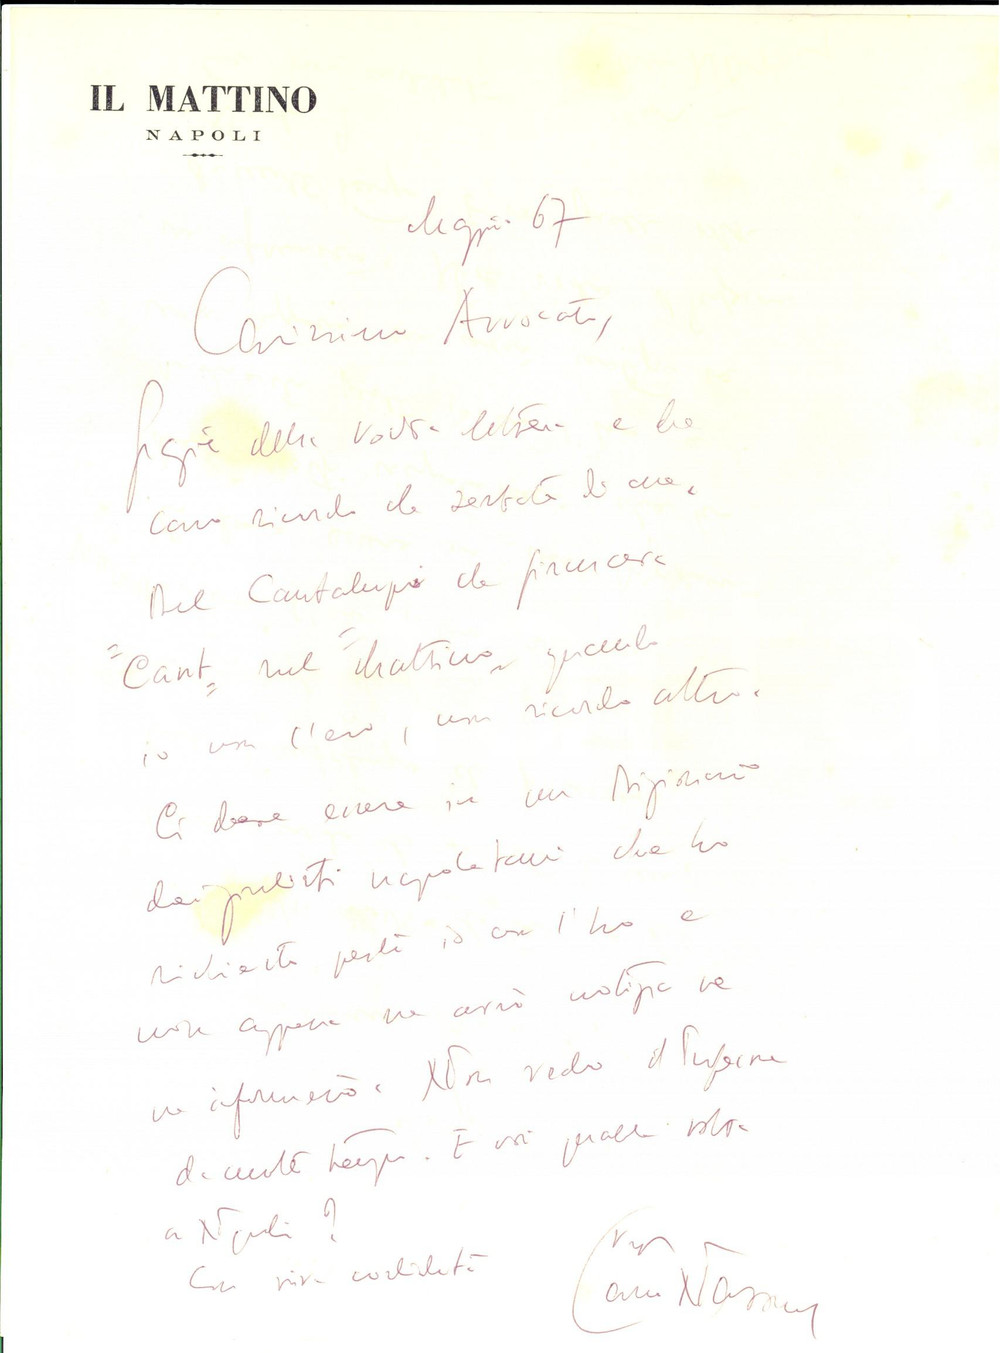 IL MATTINO
NAPOLI
Maggio 67
Carissimo Avvocato,
Grazie della vostra lettera e del
caro ricordo che serbate di me.
Del Cantalupi che firmava
"Cant" sul "Mattino" quando
io non c'ero, non ricordo altro.
Ci deve essere in un Dizionario
dei poeti napoletani che ho
richiesto perché io non l'ho e
non appena ne avrò notizia ve
ne informerò. Non vedo il
da molto tempo. E voi qualche volta
a Napoli?
Con viva cordialità
Vostro
Carlo Nazzaro